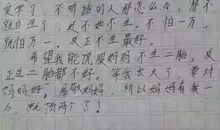 变穷了，不听话的人那怎么办，都不
就白生了，还不如不生。不怕一万，
就怕万一。反正不生最好。
希望我能说服妈妈不生二胎，反
正生二胎都不好。等我长大了，要对
妈妈好，孝敬妈妈，所以妈妈有我一
人，就顶两个了！